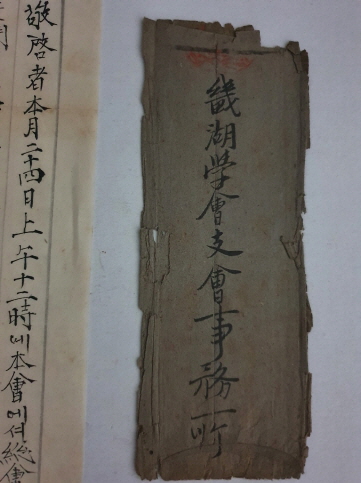 敬啓者本月二十四日上午十二時에本會에셔総會
畿湖學會支會事務所